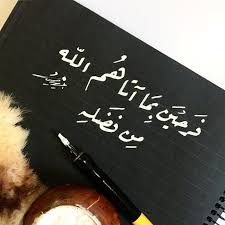 فَرِحِينَ بِمَا آتَاهُم اللّه
مِن فَضْلِهِ